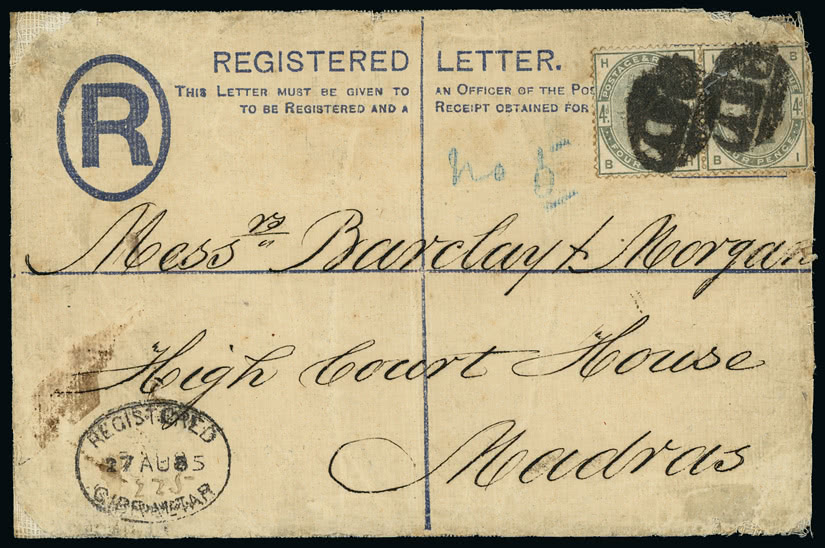 REGISTERED LETTER.
THIS LETTER MUST BE GIVEN TO AN OFFICER OF THE POS
TO BE REGISTERED AND A RECEIPT OBTAINED FOR
R
H
POSTAGE & R
4d.
B H
I B
4d.
FOUR PENCE
B I
No 6
Messrs Barclay & Morgan
High Court House
Madras
REGISTERED
27 AU 85
GIBRALTAR